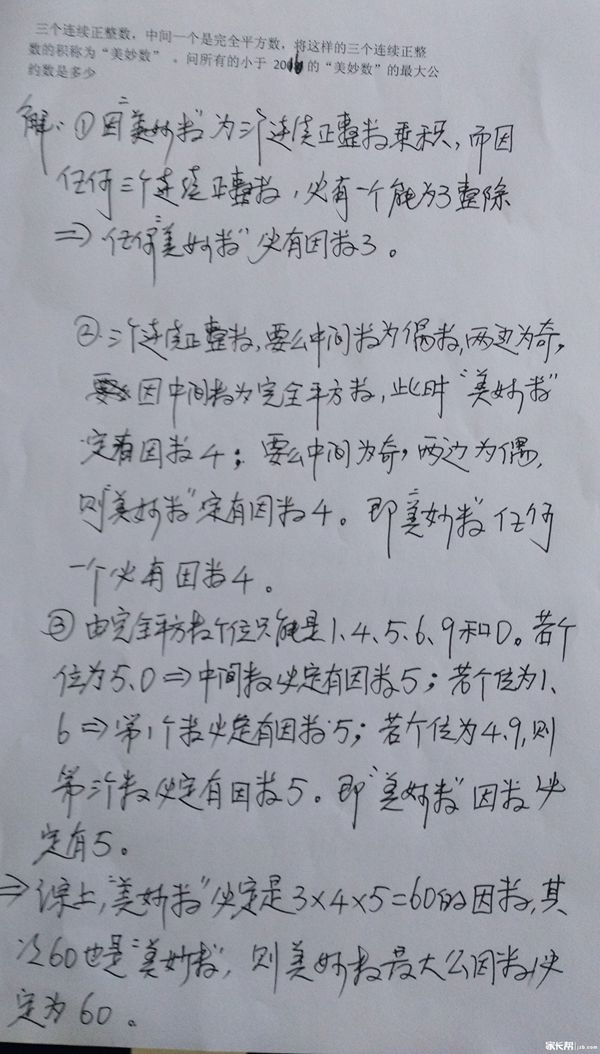 三个连续正整数，中间一个是完全平方数，将这样的三个连续正整
数的积称为“美妙数”。问所有的小于 20 的“美妙数”的最大公
约数是多少
解：①因“美妙数”为三个连续正整数乘积，而因
任何三个连续正整数，必有一个能为3整除
⇒ 任何“美妙数”必有因数3。
②三个连续正整数，要么中间数为偶数，两边为奇，
因中间数为完全平方数，此时“美妙数”
定有因数4；要么中间为奇，两边为偶，
则“美妙数”定有因数4。即“美妙数”任何
一个必有因数4。
③由完全平方数个位只能是1、4、5、6、9和0。若个
位为5、0⇒中间数必定有因数5；若个位为1、
6⇒第1个数必定有因数5；若个位为4、9，则
第三个数必定有因数5。即“美妙数”因数必
定有5。
⇒综上，“美妙数”必定是3×4×5=60的因数，其
次60也是“美妙数”，则美妙数最大公因数必
定为60。
家长帮 jzb.com